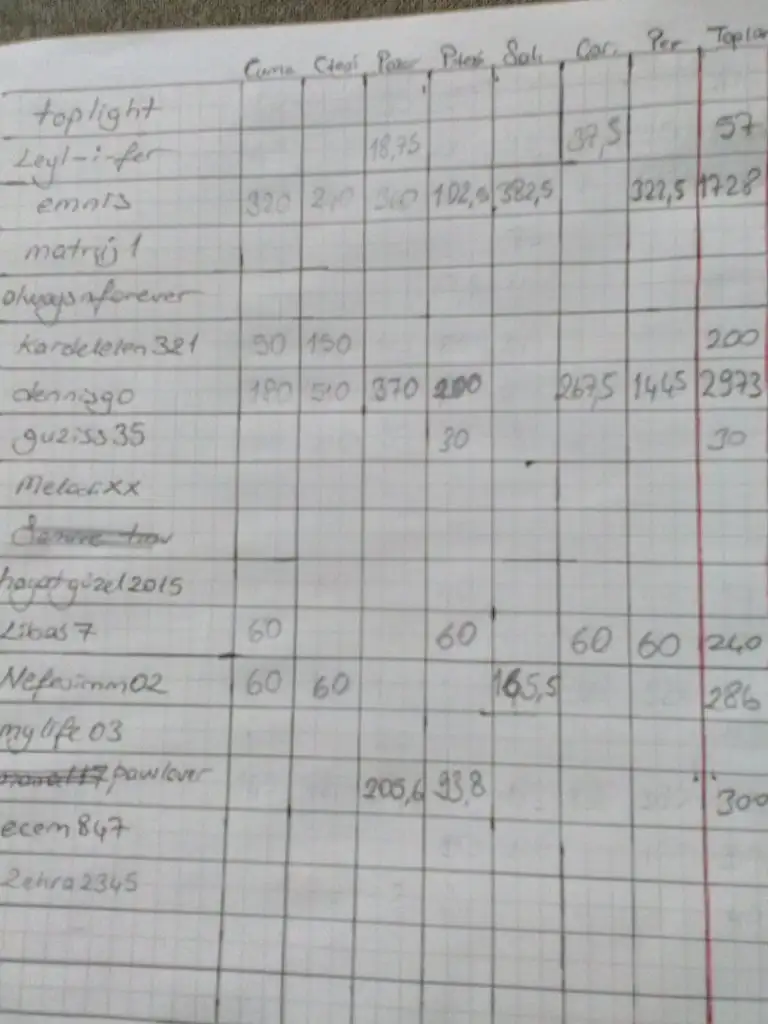 Cuma Ctesi Pazar Ptesi Salı Çar. Per Toplam
toplight
Leyl-i-fer 18,75 37,5 57
emnis 320 340 102,5 382,5 322,5 1728
matrij1
alwaysnforever
Kardelelen321 50 150 200
dennisgo 180 510 370 200 267,5 1445 2973
guziss35 30 30
MelodiXX
hayatgüzel2015
Libas7 60 60 60 60 240
Nefesimm02 60 60 165,5 286
mylife03
pawlover 205,6 93,8 300
ecem847
Zehra2345